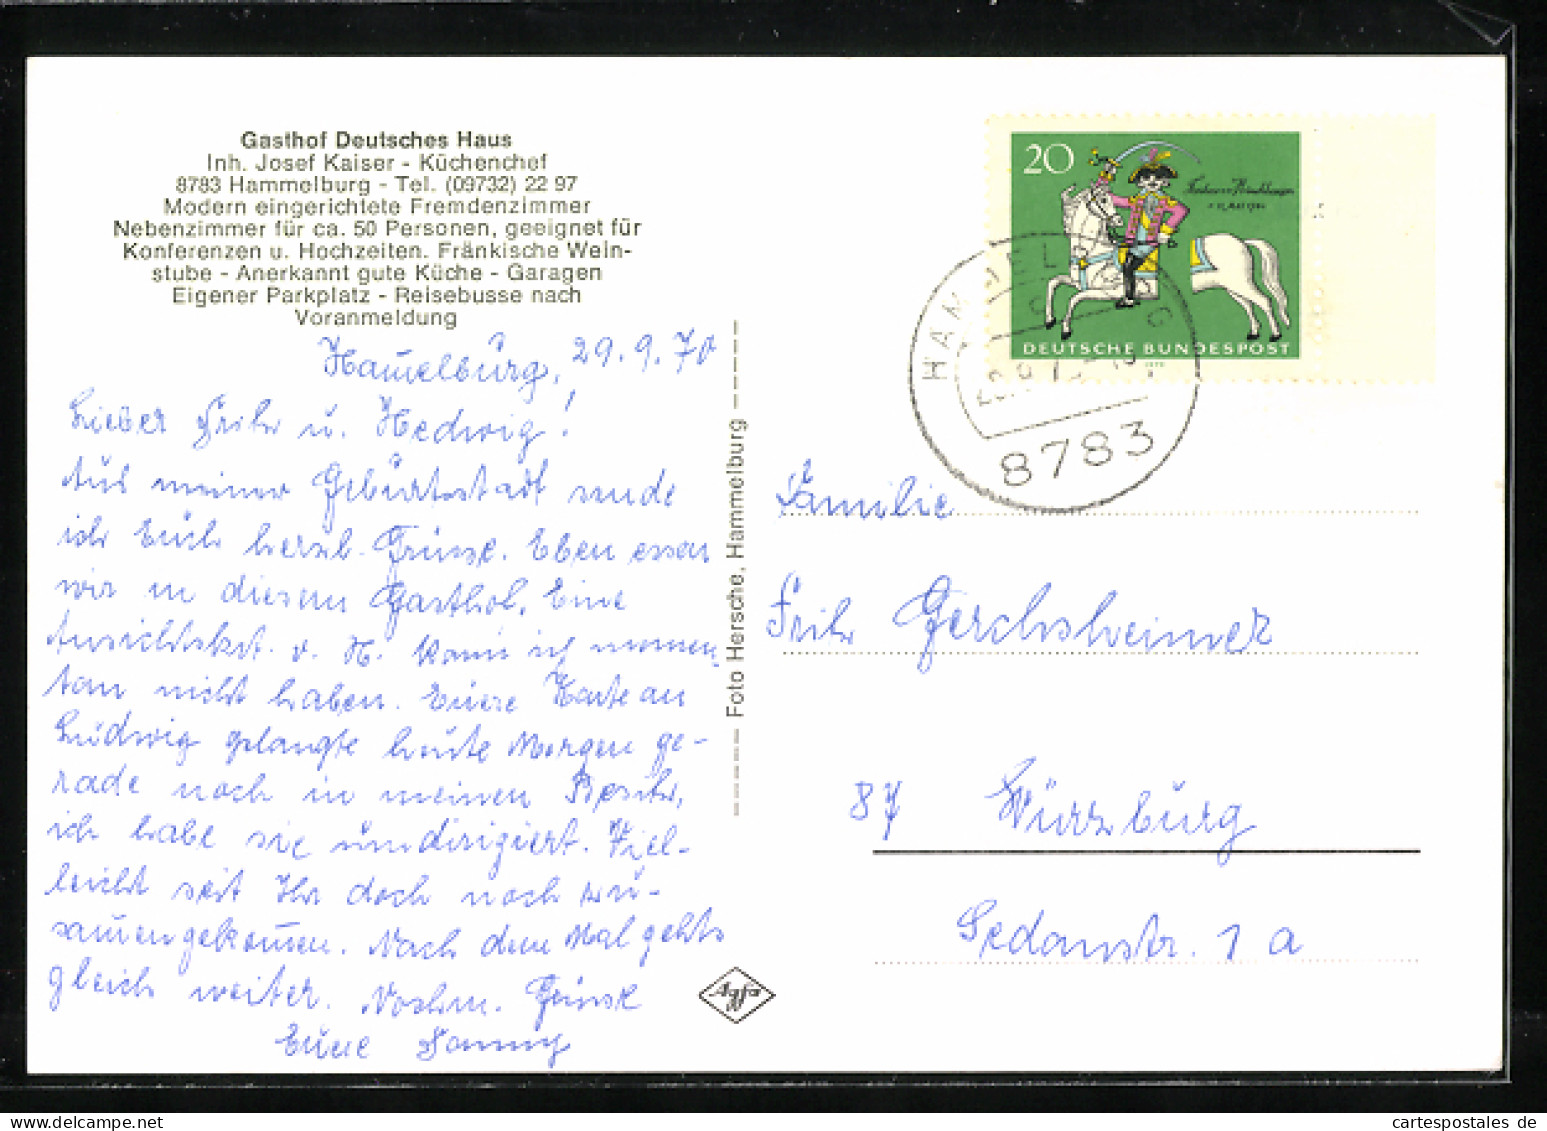 Gasthof Deutsches Haus
Inh. Josef Kaiser - Küchenchef
8783 Hammelburg - Tel. (09732) 22 97
Modern eingerichtete Fremdenzimmer
Nebenzimmer für ca. 50 Personen, geeignet für
Konferenzen u. Hochzeiten. Fränkische Wein-
stube - Anerkannt gute Küche - Garagen
Eigener Parkplatz - Reisebusse nach
Voranmeldung
Ham̅elburg, 29.9.70
Lieber Fritz u. Hedwig!
Aus meiner Geburtsstadt sende
ich Euch herzl. Grüsse. Eben essen
wir in diesem Gasthof. Eine
Ansichtskrt. v. H. kann ich momen-
tan nicht haben. Eure Karte an
Ludwig gelangte heute Morgen ge-
rade noch in meinen Besitz,
ich habe sie umdirigiert. Viel-
leicht seit Ihr doch noch zu-
sam̅engekom̅en. Nach dem Mal gehts
gleich weiter. Nochm. Grüsse
Eure Fanny
Foto Hersche, Hammelburg
Agfa
20
DEUTSCHE BUNDESPOST
HAMMELBURG
8783
Familie
Fritz Gerchsheimer
87 Würzburg
Sedanstr. 1 a
cartespostales de